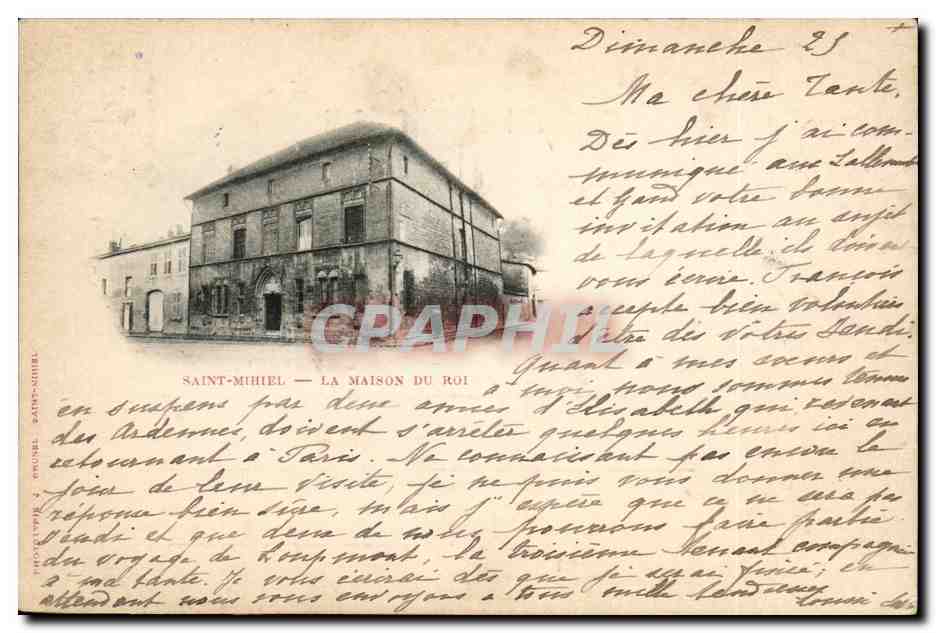 Dimanche 25
Ma chère Tante,
Dès hier j'ai com-
muniqué aux Lallemand
et Gand votre bonne
invitation au sujet
de laquelle ils doivent
vous écrire. François
accepte bien volontiers
d'être des vôtres Jeudi.
Quant à mes sœurs et
à moi, nous sommes tenues
en suspens par deux amies d'Elisabeth qui, revenant
des Ardennes, doivent s'arrêter quelques heures ici en
retournant à Paris. Ne connaissant pas encore le
jour de leur visite, je ne puis vous donner une
réponse bien sûre, mais j'espère que ce ne sera pas
jeudi et que deux de nous pourrons faire partie
du voyage de Loupmont, la troisième tenant compagnie
à ma tante. Je vous écrirai dès que je serai fixée; en
attendant nous vous envoyons à tous mille tendresses
SAINT-MIHIEL — LA MAISON DU ROI
PHOTOTYPIE J. BRUNEL SAINT-MIHIEL
CPARAMA